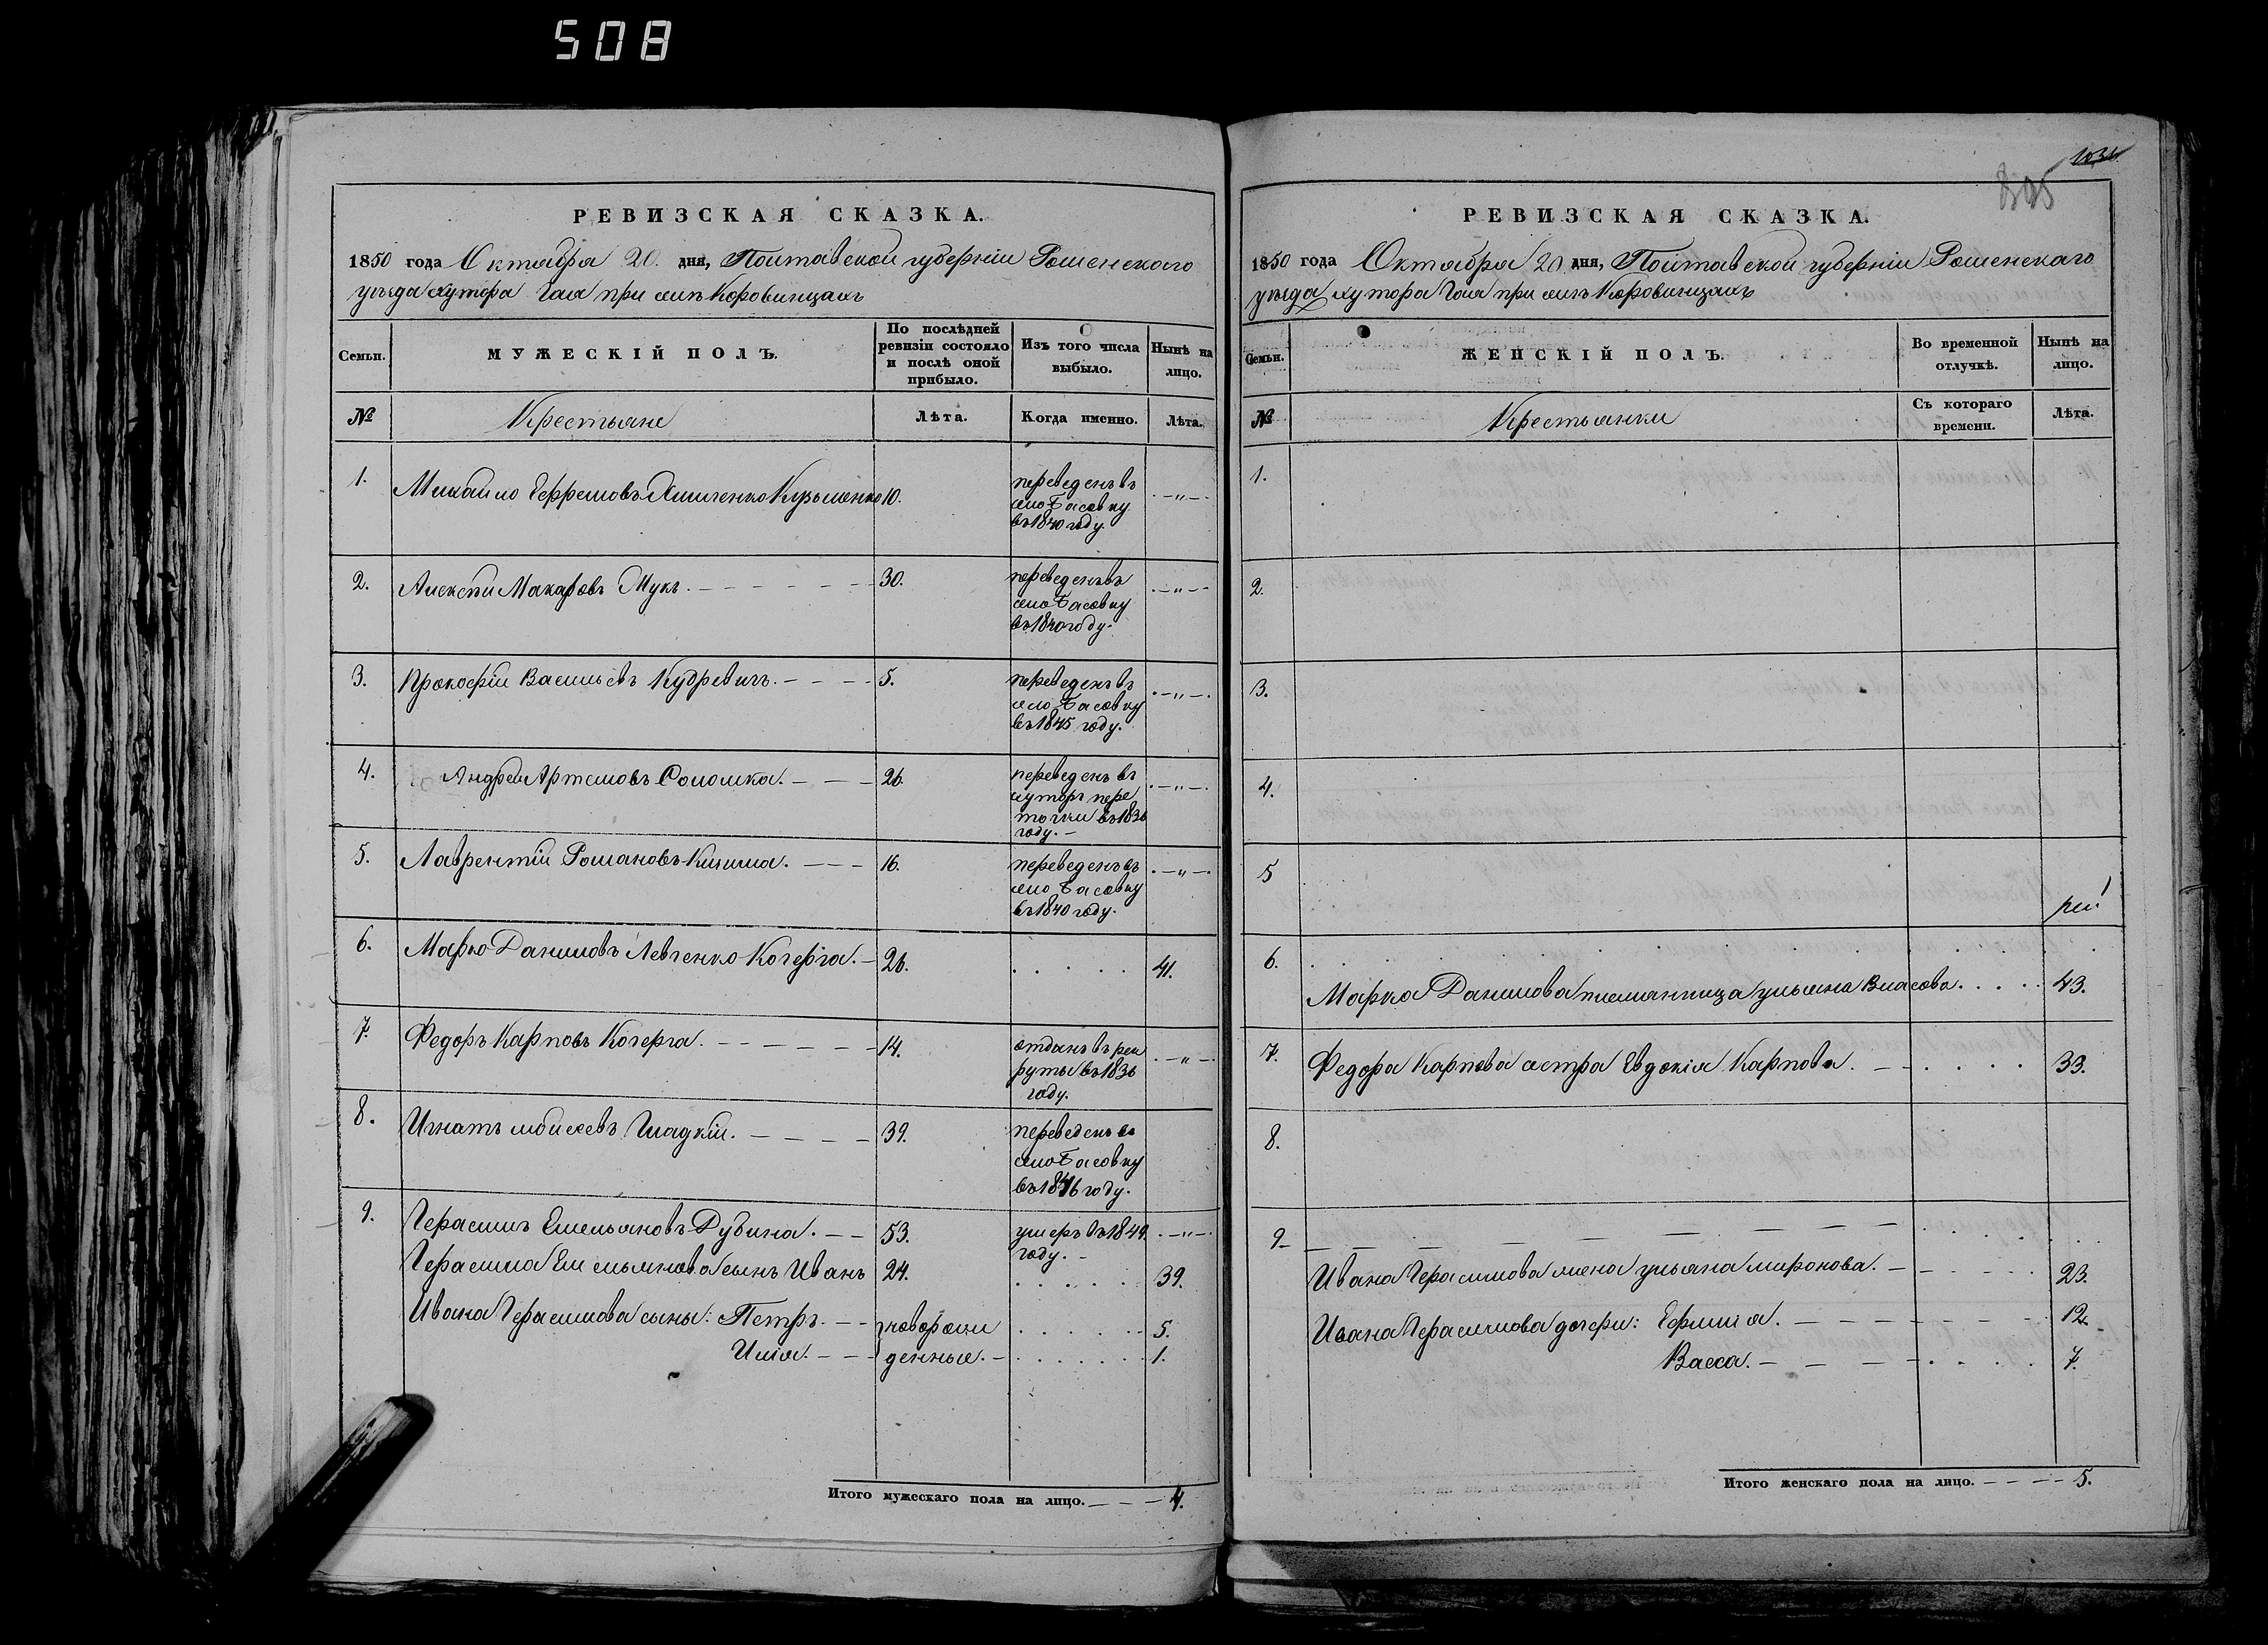 508
РЕВИЗСКАЯ СКАЗКА.
1850 года Октября 20. дня, Полтавской губерніи Роменскаго
уѣзда хутора Гая при селѣ Коровинцахъ
Семьи. МУЖЕСКІЙ ПОЛЪ. По послѣдней ревизіи состояло и послѣ оной прибыло. Изъ того числа выбыло. Нынѣ на лицо.
№ Крестьяне Лѣта. Когда именно. Лѣта.
1. Михайло Ефремовъ Кузьменко 10. переведенъ въ
село Басовку
въ 1840 году. -"-
2. Алексѣй Макаровъ Мукъ. 30. переведенъ въ
село Басовку
въ 1840 году. -"-
3. Прокофій Васильевъ Кудревичъ. 5. переведенъ въ
село Басовку
въ 1845 году. -"-
4. Андрей Артемовъ Соломка. 26. переведенъ въ
хуторъ пере
точки въ 1836
году. -"-
5. Лаврентій Романовъ 16. переведенъ въ
село Басовку
въ 1840 году. -"-
6. Марко Даниловъ Левченко Кочерга. 26. 41.
7. Федоръ Карповъ Кочерга. 14. отданъ въ рек
руты въ 1836
году. -"-
8. Игнатъ Мойсеевъ Гладкій. 39. переведенъ въ
село Басовку
въ 1846 году.
9. Герасимъ Емельяновъ Дубина. 53. умеръ въ 1849
году. -"-
Герасима Емельянова сынъ Иванъ 24. 39.
Ивана Герасимова сыны: Петръ. новорож 5.
Илія. денные. 1.
Итого мужескаго пола на лицо. 4.
1036
805
РЕВИЗСКАЯ СКАЗКА.
1850 года Октября 20 дня, Полтавской губерніи Роменскаго
уѣзда хутора Гая при селѣ Коровинцахъ
Семьи. ЖЕНСКІЙ ПОЛЪ. Во временной отлучкѣ. Нынѣ на лицо.
№ Крестьянки Съ котораго времени. Лѣта.
1.
2.
3.
4.
5
6.
Марка Данилова племянница Ульяна Власова. 43.
7. Федора Карпова сестра Евдокія Карпова. 33.
8.
9.
Ивана Герасимова жена Ульяна Миронова. 23.
Ивана Герасимова дочери: Ефимія. 12.
Васса. 7.
Итого женскаго пола на лицо. 5.